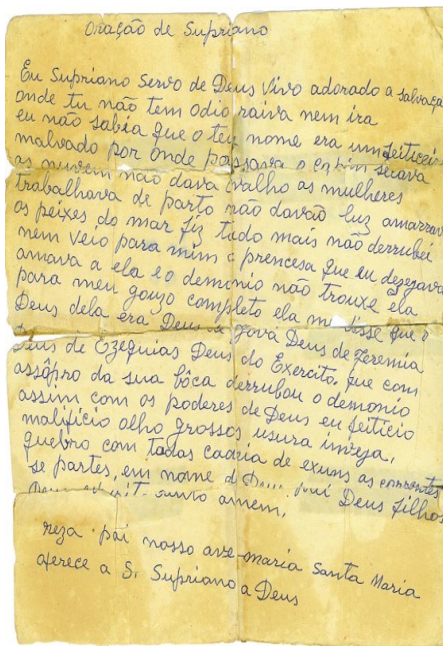 Oração de Supriano
Eu Supriano servo de Deus vivo adorado a salvação
onde tu não tem odio raiva nem ira
eu não sabia que o teu nome era um feiticeiro
malvado por onde passava o capim secava
as nuvem não dava orvalho as mulheres
trabalhava de parto não davão luz amarrava
os peixes do mar fiz tudo mais não derrubei
nem veio para mim a prencesa que eu dezejava
amava a ela e o demonio não trouxe ela
para meu gouzo completo ela me disse que o
Deus dela era Deus de Jová Deus de Jeremia
Deus de Ezequias Deus do Exercito, que com
assôpro da sua bôca derrubou o demonio
assim com os poderes de Deus eu feitiço
malificio olho grossos usura inveja,
quebro com todas as correntes
se partes, em nome de Deus pai Deus filho
Deus santo amem,
reza pai nosso ave-maria Santa Maria
oferece a S. Supriano a Deus